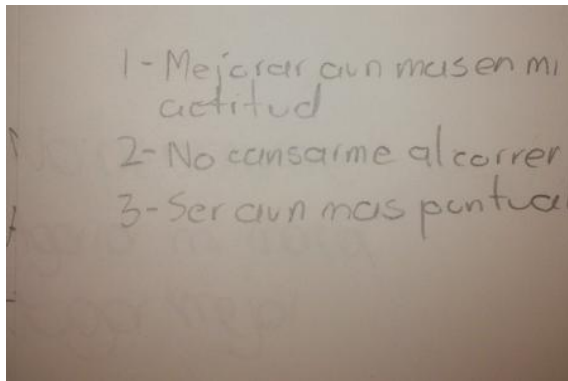 1- Mejorar aun mas en mi
actitud
2- No cansarme al correr
3- Ser aun mas puntua